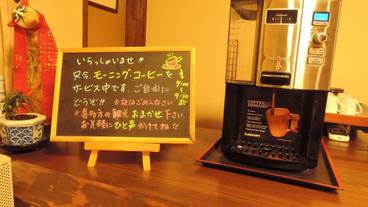 いらっしゃいませ!!
只今、モーニング・コーヒーを
サービス中です。ご自由に
どうぞ!! ※夜はごめんなさい
7:00
9:30
※喜多方の観光おまかせ下さい。
お気軽にひと声かけてね!!